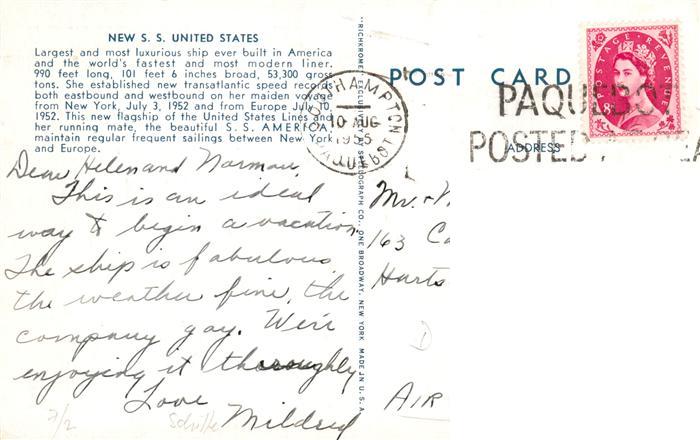 NEW S. S. UNITED STATES
Largest and most luxurious ship ever built in America
and the world's fastest and most modern liner.
990 feet long, 101 feet 6 inches broad, 53,300 gross
tons. She established new transatlantic speed records
both eastbound and westbound on her maiden voyage
from New York, July 3, 1952 and from Europe July 10,
1952. This new flagship of the United States Lines and
her running mate, the beautiful S. S. AMERICA,
maintain regular frequent sailings between New York
and Europe.
Dear Helen and Norman,
This is an ideal
way to begin a vacation.
The ship is fabulous,
the weather fine, the
company gay. We're
enjoying it thoroughly
Love
Mildred
7/2
ONE BROADWAY, NEW YORK MADE IN U. S. A.
SOUTHAMPTON
10 AUG
1955
PAQUEBOT
POST CARD
POSTAGE REVENUE
PAQUEBOT
POSTED
ADDRESS
Mr. &
163
Harts
AIR